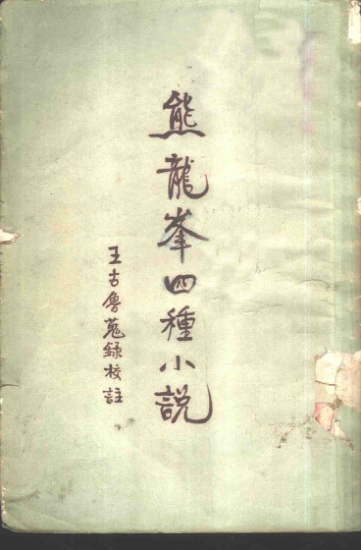 熊龍峯四種小説
王古魯蒐録校註